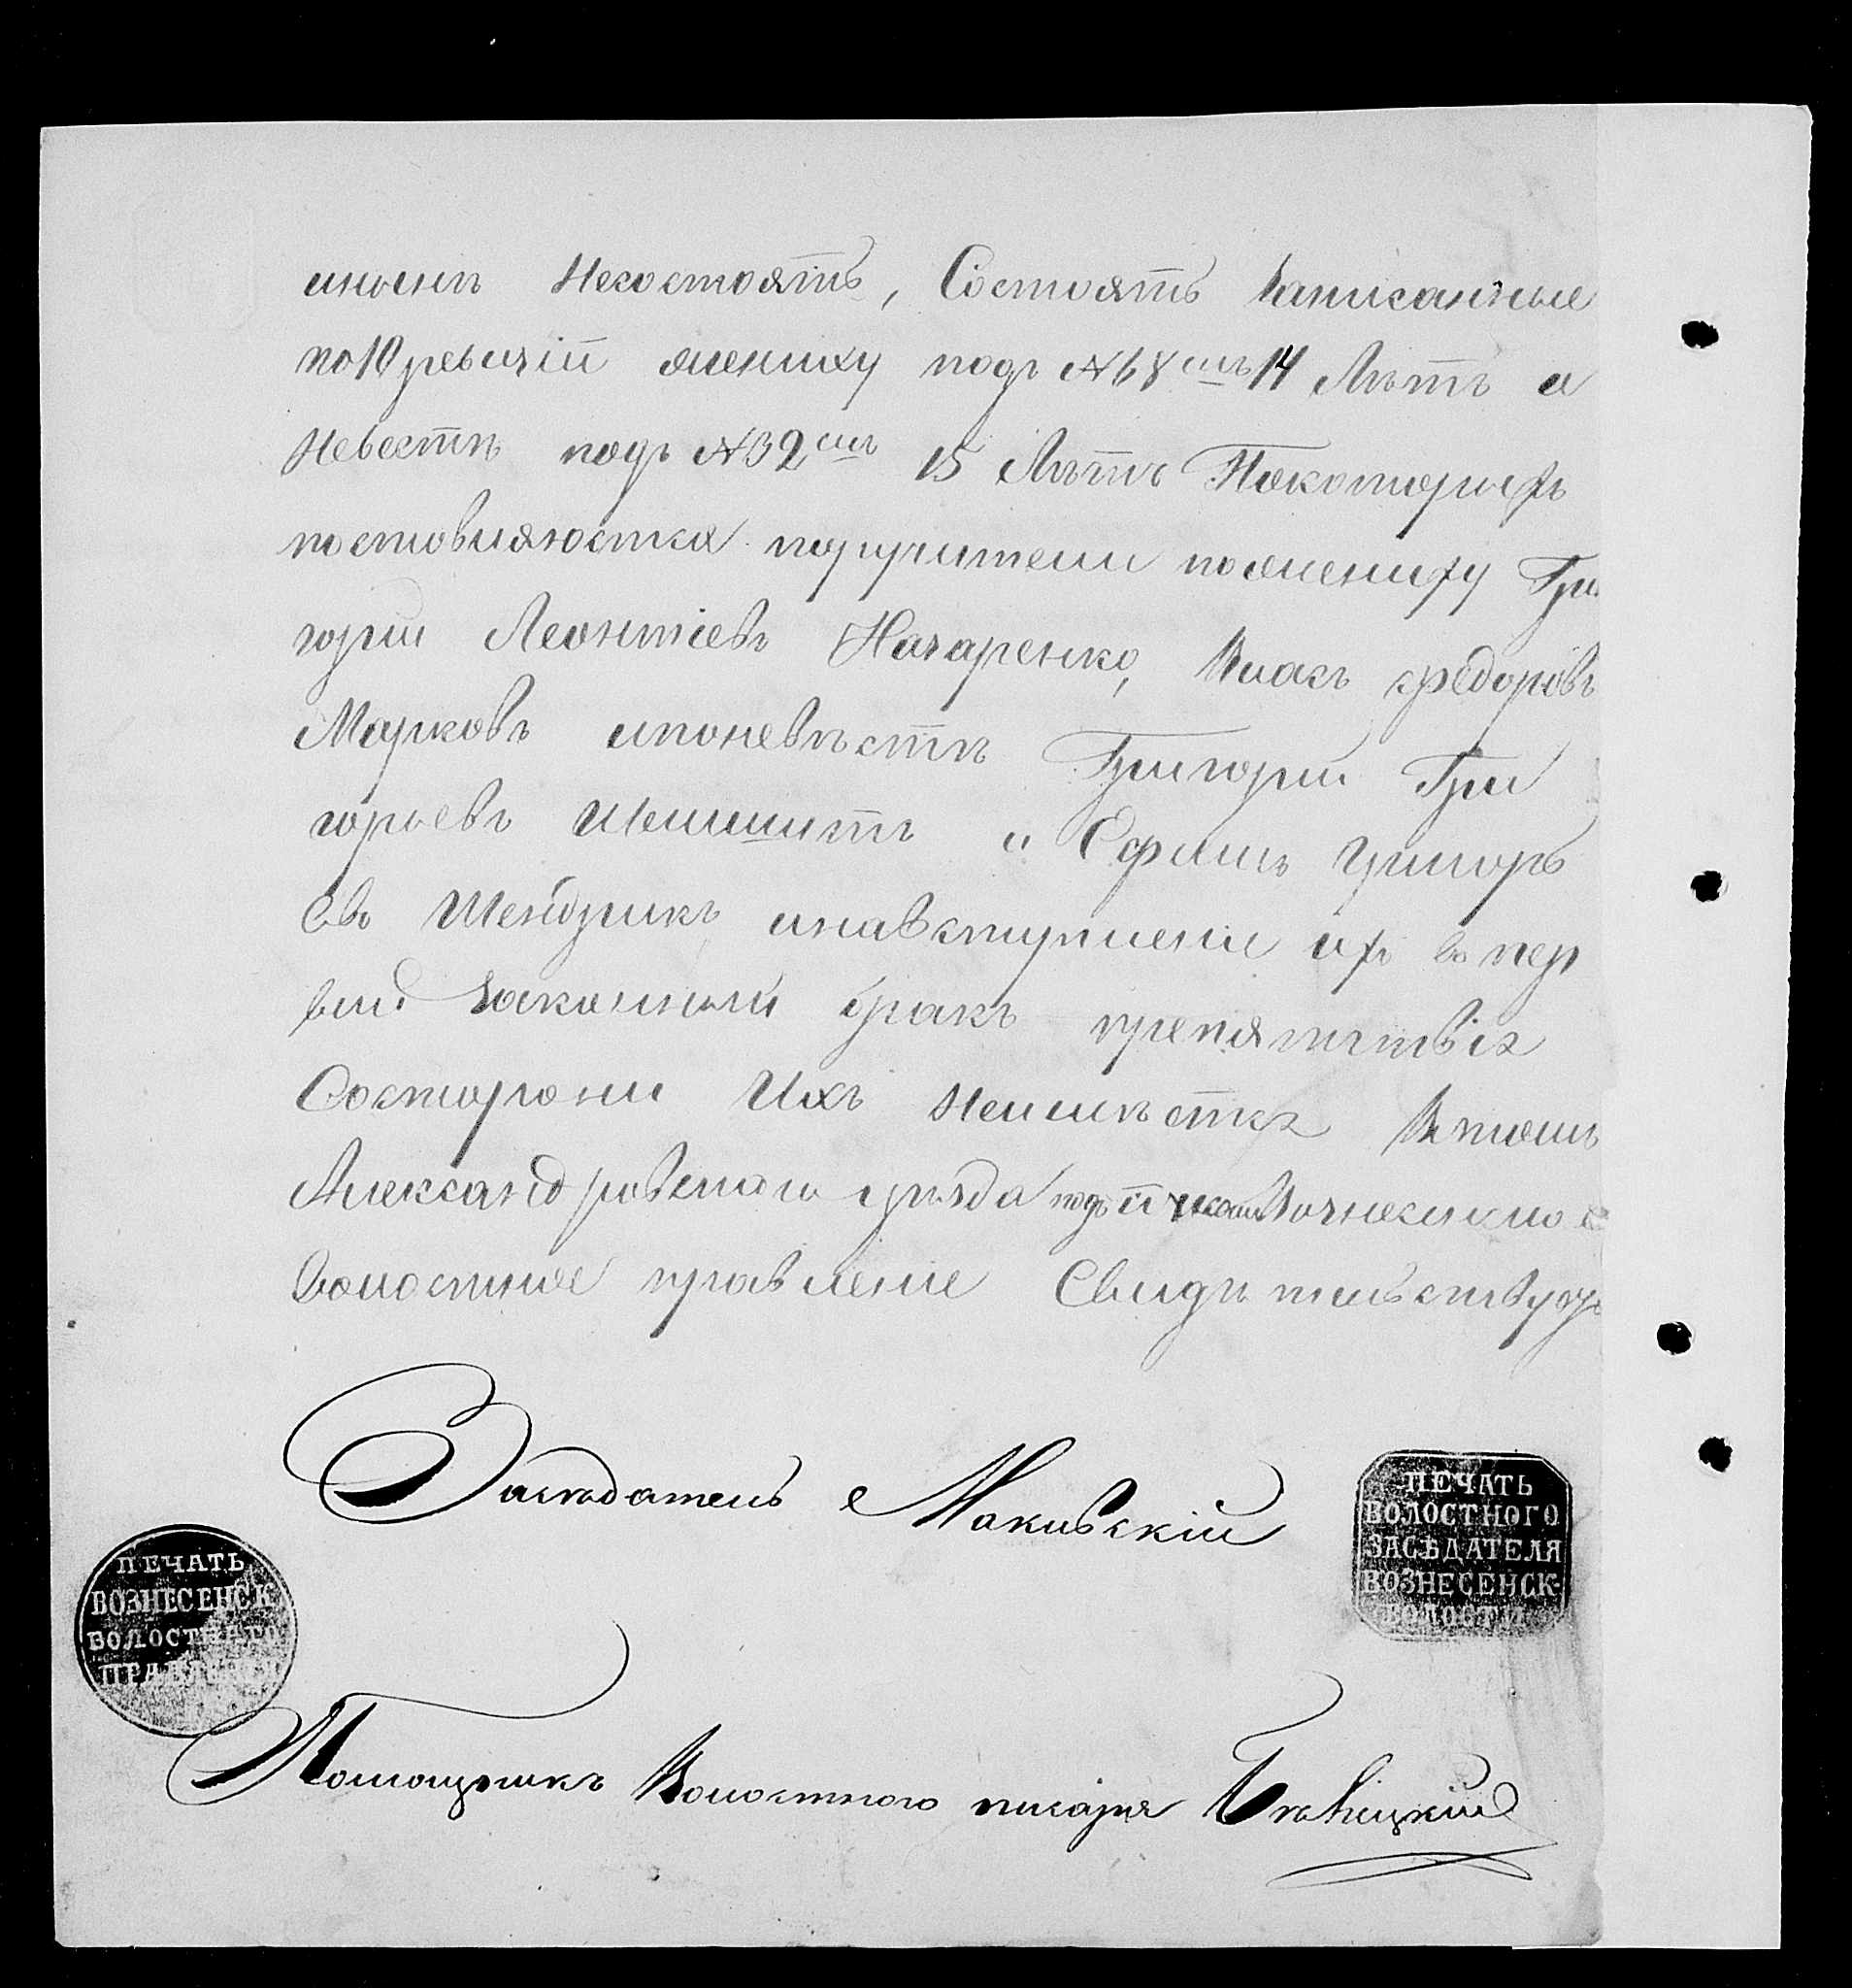 Несостоятъ, Состоятъ Записанные
по 10 ревизіи жениху подъ №68 смъ 14 Лѣтъ а
Невестѣ подъ №32 смъ 15 Лѣтъ Покоторыхъ
поручители пожениху Гри
горій Леонтіевъ Назаренко, Влакъ Федоровъ
Марковъ ипоневѣстѣ Григорій Гри
горьевъ и Ефимъ Григорь
евъ Шендрикъ инавступленіи ихъ въ пер
вый Законный бракъ препятствія
Состороны Ихъ Неимѣтся Втомъ
Александровскаго уѣзда Вознесенское
Волостное правленіе Свидѣтельствуетъ
Засѣдатель Маковскій
ПЕЧАТЬ
ВОЛОСТНОГО
ЗАСѢДАТЕЛЯ
ВОЗНЕСЕНСК
ВОЛОСТИ
ПЕЧАТЬ
ВОЗНЕСЕНСК
ВОЛОСТНАГО
ПРАВЛЕНІЯ
Помощникъ Волостного писаря Бѣлицкій